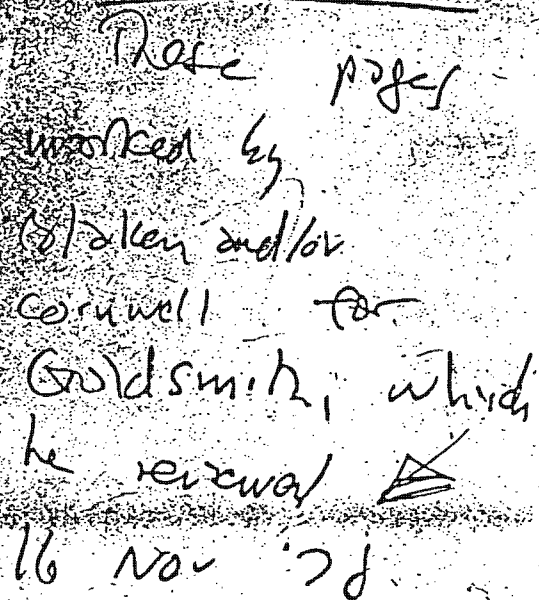 These pages
marked by
Blakey and/or
Cornwell for
Goldsmith, which
he reviewed
16 Nov '78